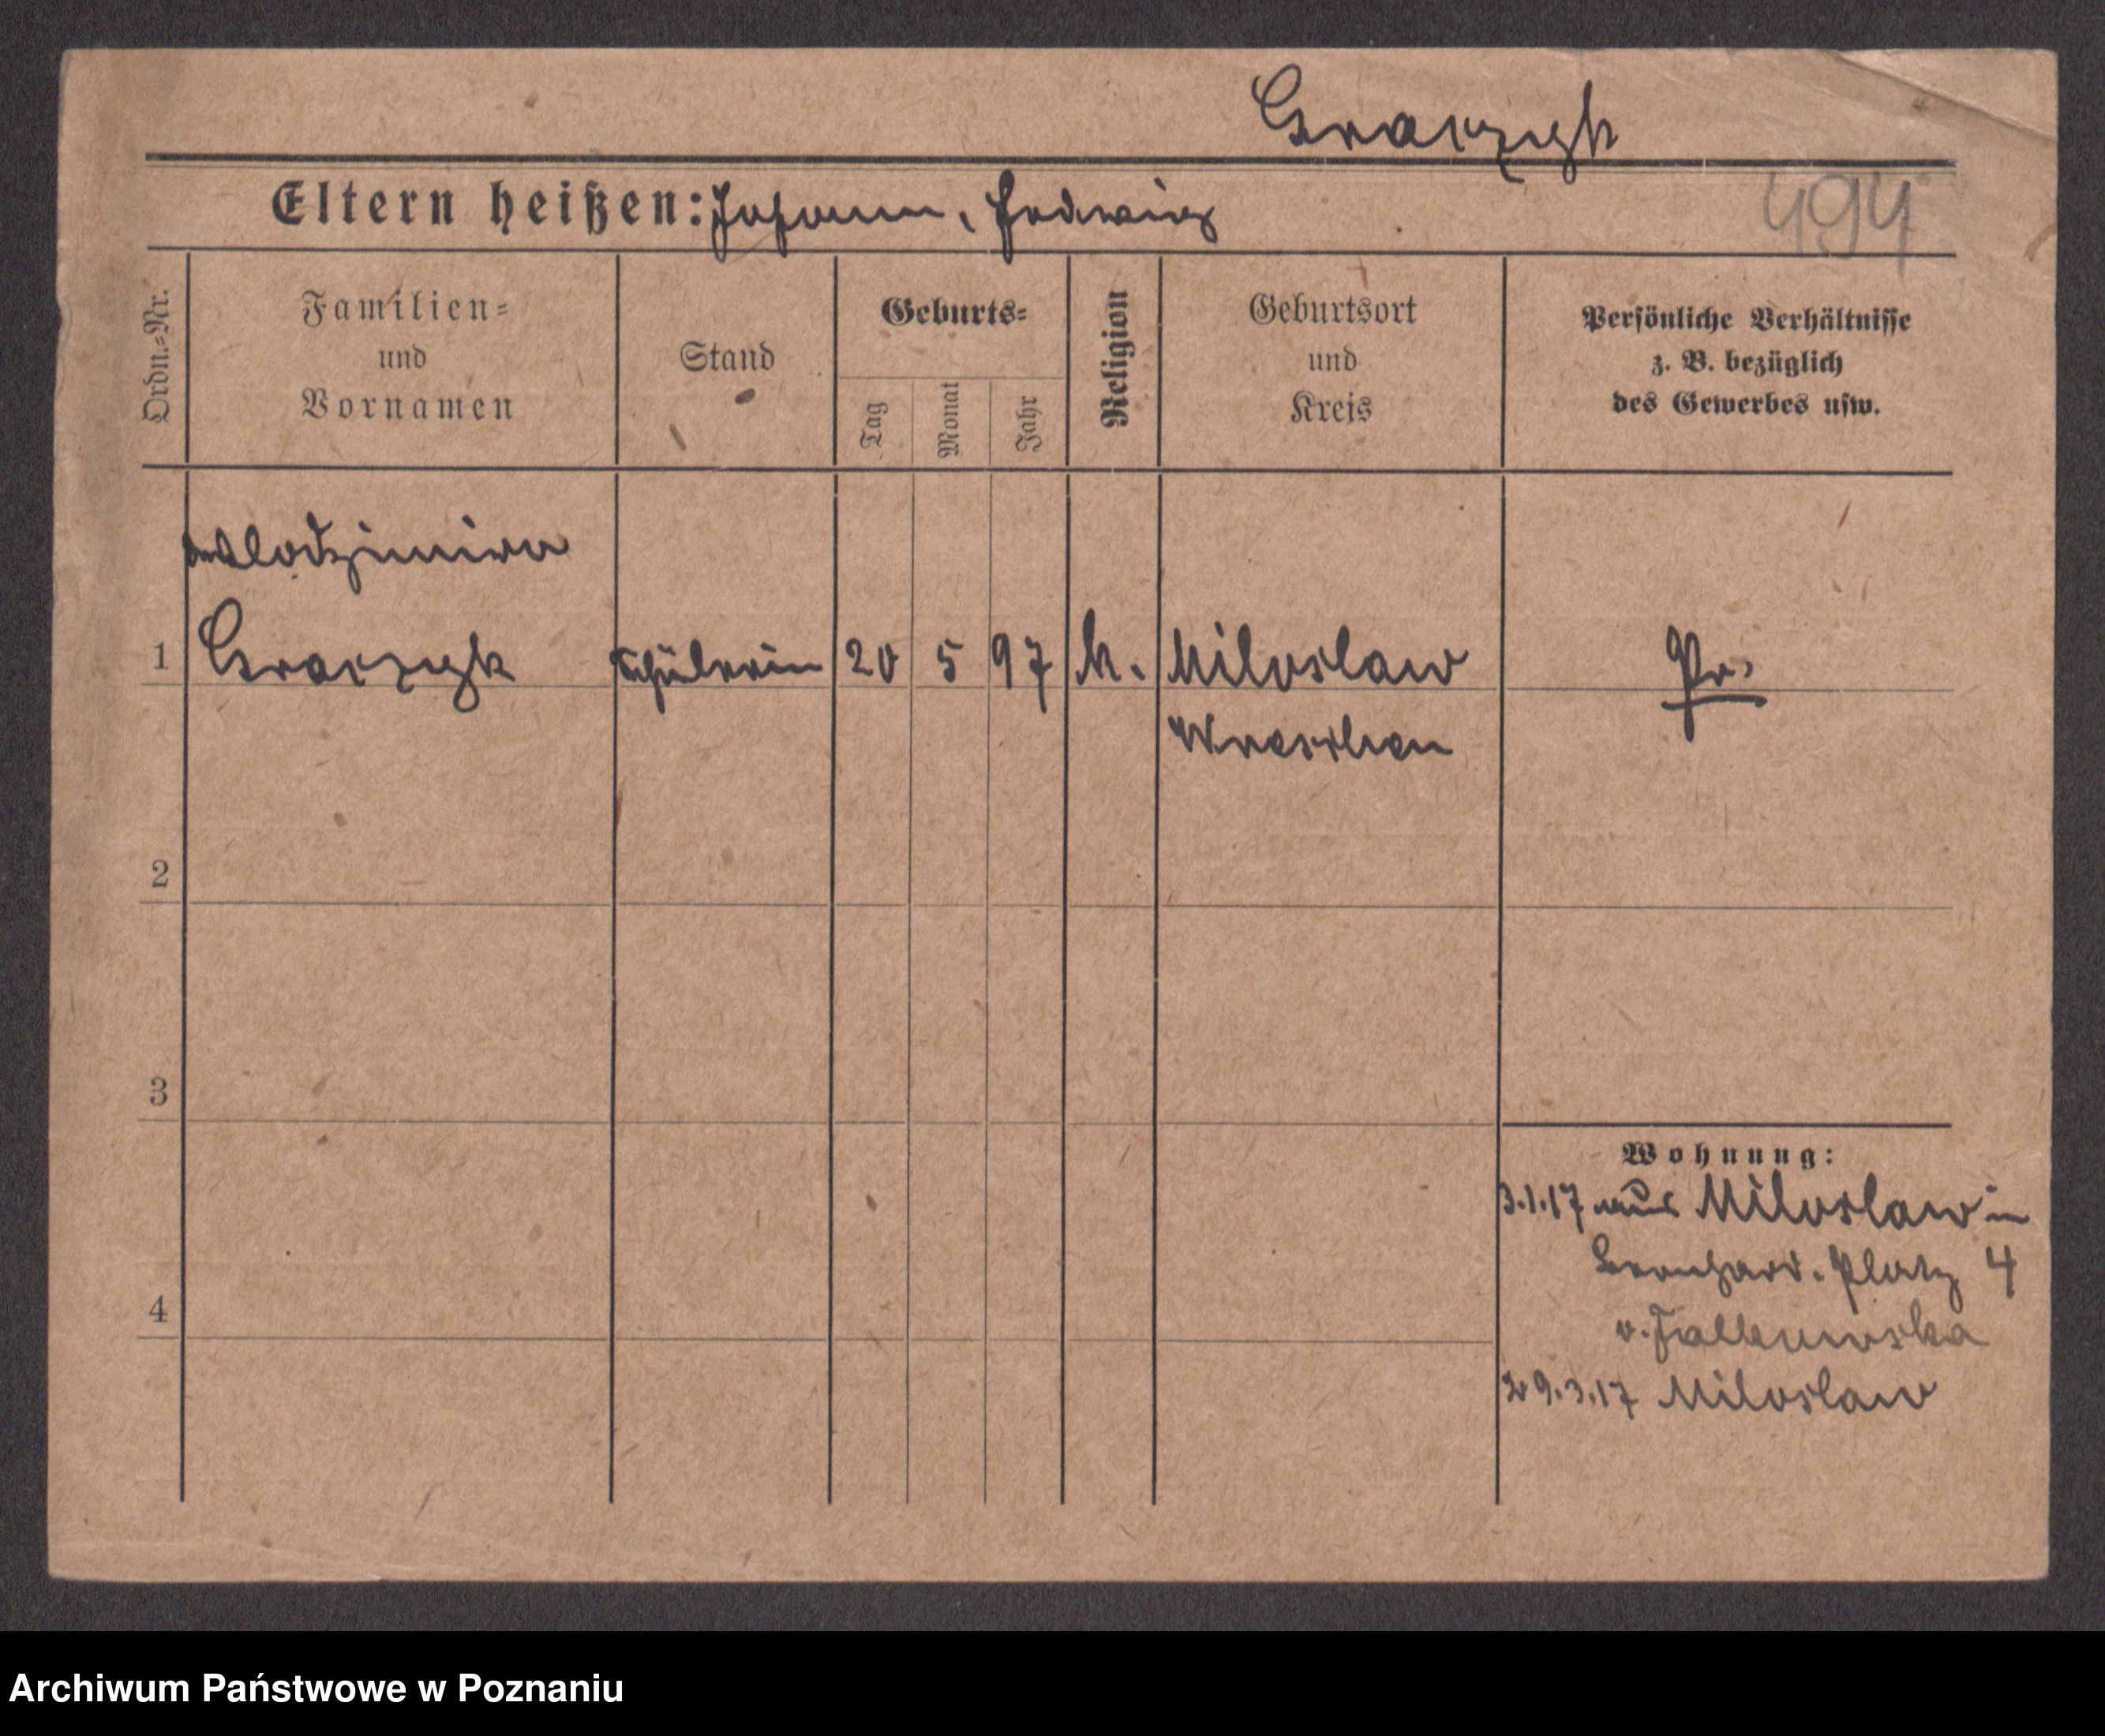 Graczyk
Eltern heißen: Johann, Hedwig
494
Ordn.-Nr.
Familien-
und
Vornamen
Stand
Geburts-
Tag
Monat
Jahr
Religion
Geburtsort
und
Kreis
Persönliche Verhältnisse
z. B. bezüglich
des Gewerbes usw.
Wlodzimira
1 Graczyk Schülerin 20 5 97 k. Miloslaw Pr.
Wreschen
2
3
4
Wohnung:
3.1.17 aus Miloslaw in
Bernhard. Platz 4
v. Falkowska
29.3.17 Miloslaw
Archiwum Państwowe w Poznaniu